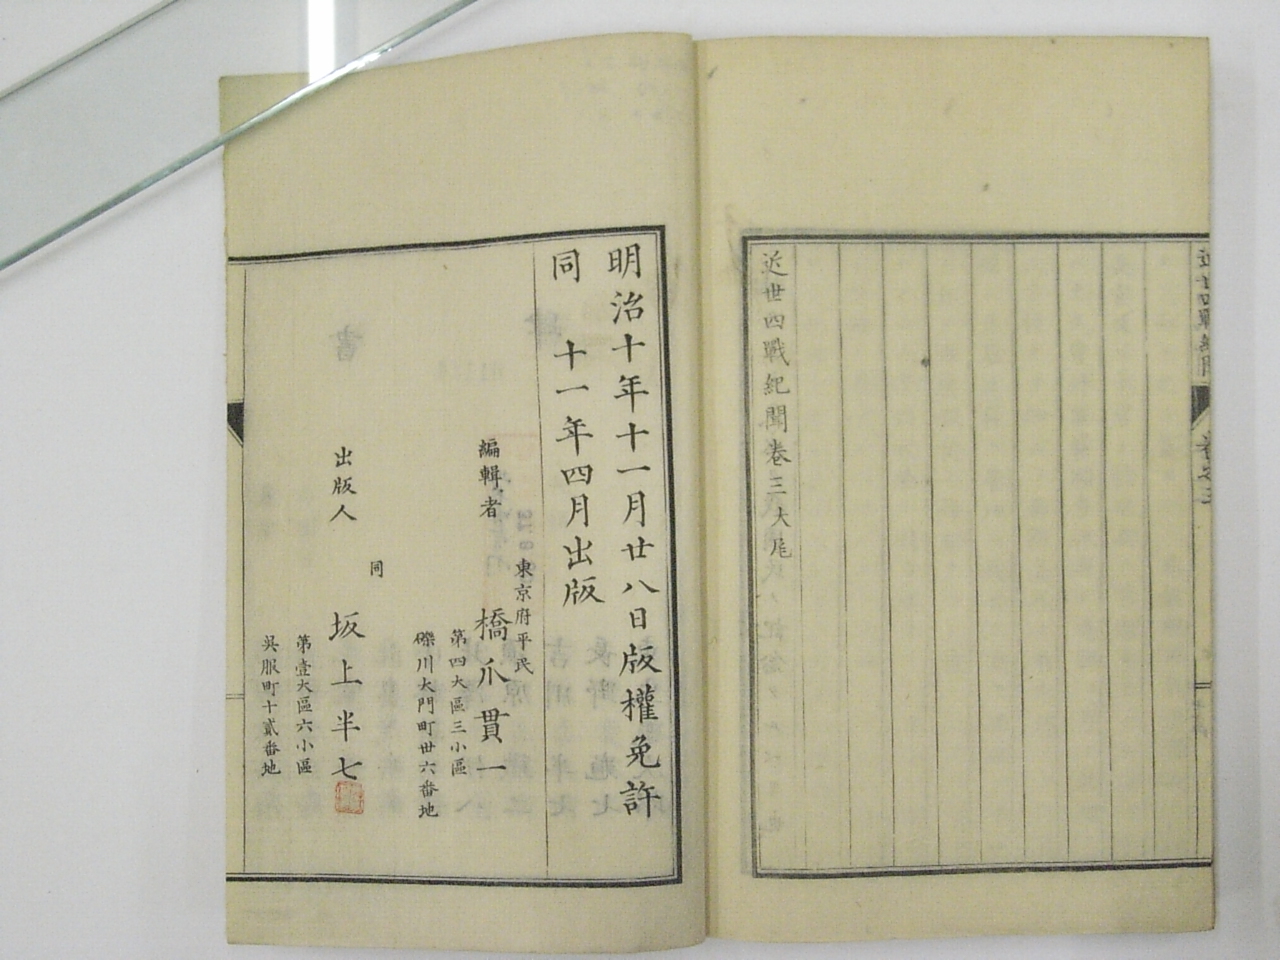 近世四戰紀聞卷三大尾
明治十年十一月廿八日版權免許
同 十一年四月出版
東京府平民
編輯者 橋爪貫一
第四大區三小區
礫川大門町卅六番地
同
出版人 坂上半七
第壹大區六小區
吳服町十貳番地